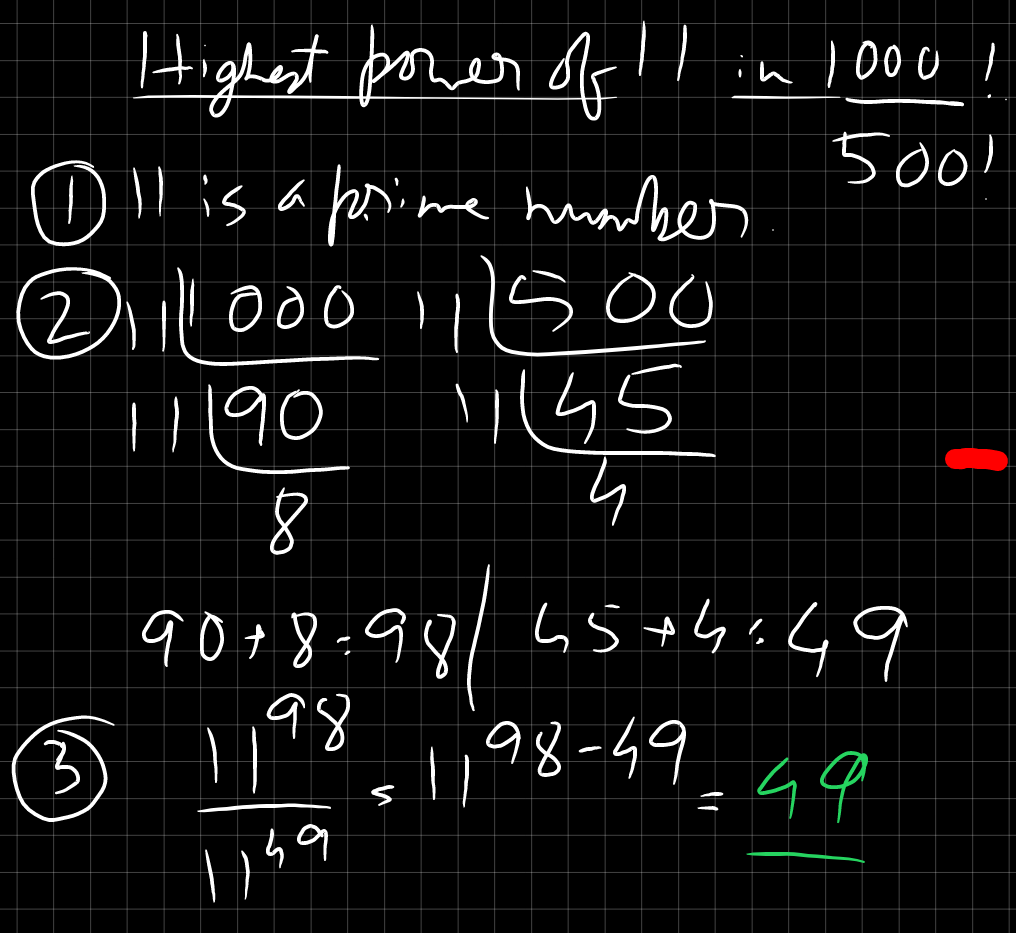 Highest power of 11 in 1000!
500!
① 11 is a prime number.
② 11 1000 11 500
11 90 11 45
8 4
90+8=98/45+4=49
③ 11^98 = 11^98-49 = 49
11^49